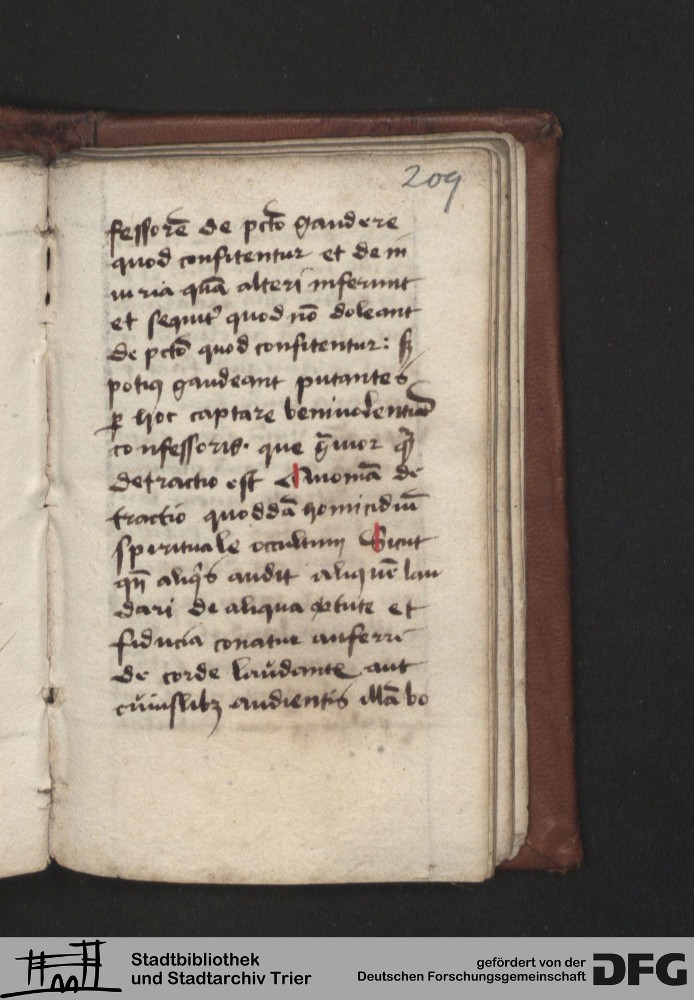 209
fessorē de pctō gaudere
quod confitentur et de in
iuria quā alteri inferunt
et sequitr quod nō doleant
de pctō quod confitentur: sꝫ
potiꝰ gaudeant putantes
ꝑ hoc captare beniuolentiā
confessoris. que
detractio est Quoniā de
tractio quoddā homicidiū
spirituale occultum Sicut
qn̄ aliqis audit aliquē lau
dari de aliqua v̓tute et
fiducia conatur auferre
de corde laudantꝭ aut
cuiuslibꝫ audientis illā bo
Stadtbibliothek
und Stadtarchiv Trier
gefördert von der
Deutschen Forschungsgemeinschaft
DFG